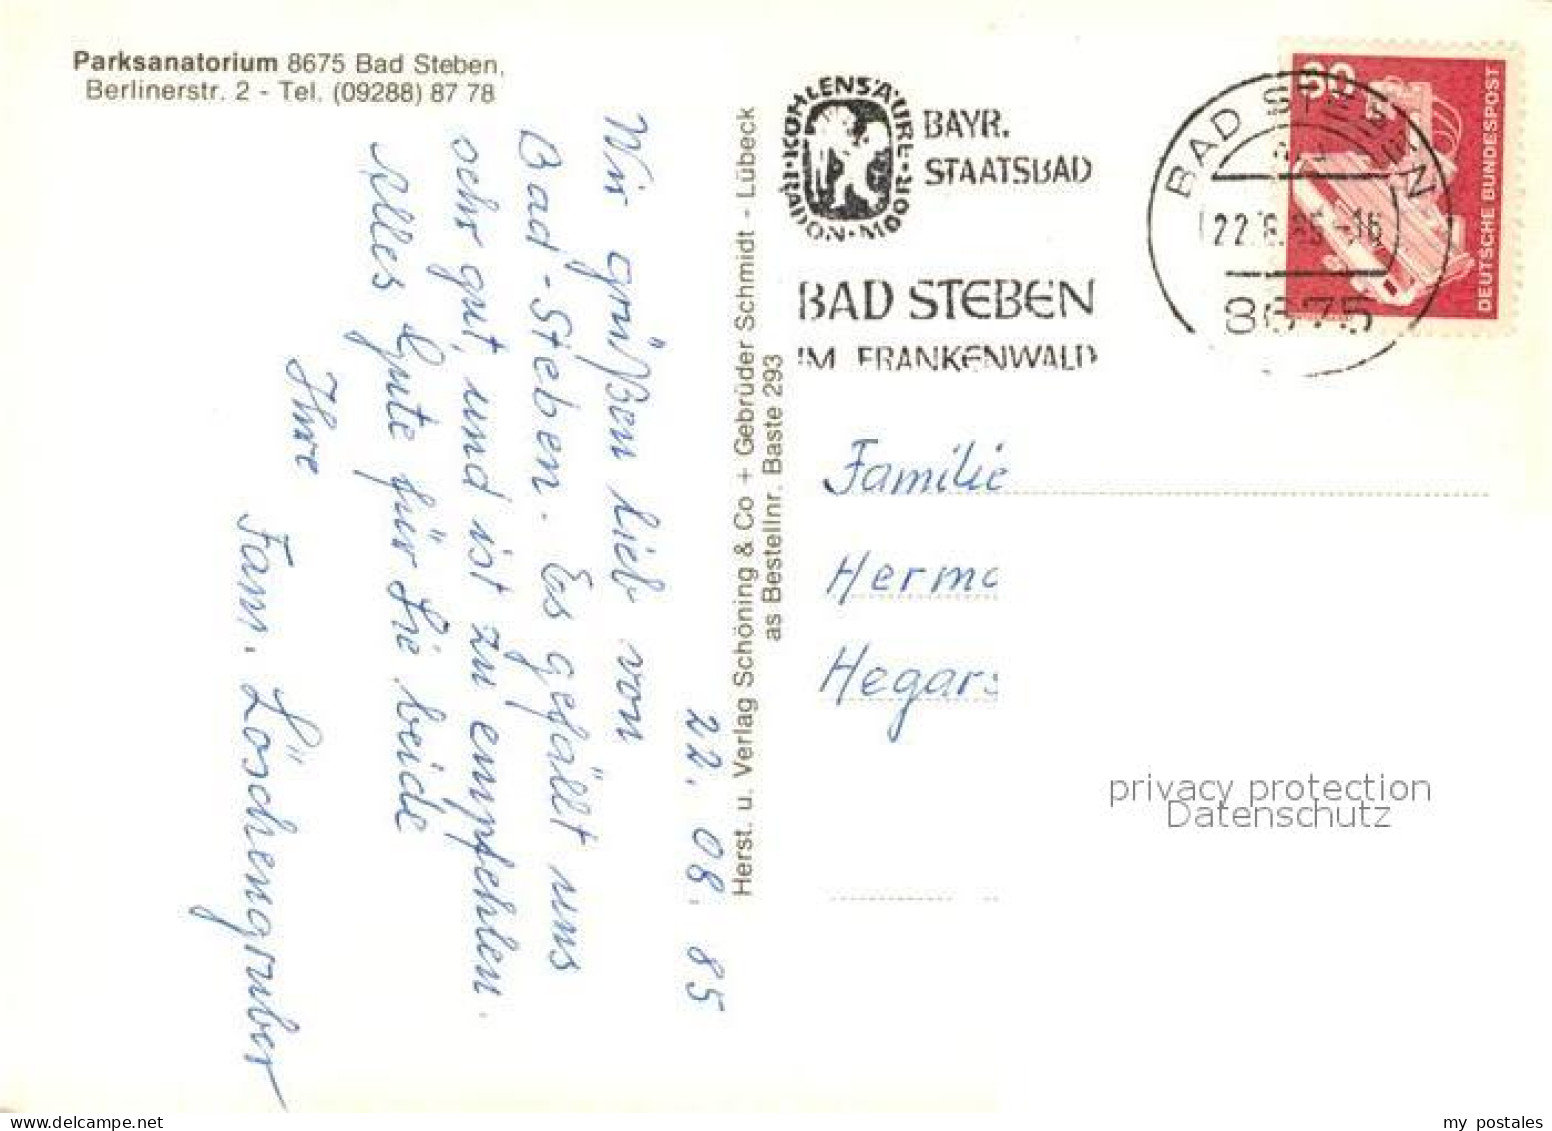 Parksanatorium 8675 Bad Steben,
Berlinerstr. 2 - Tel. (09288) 87 78
22. 08. 85
Wir grüßen lieb von
Bad-Steben. Es gefällt uns
sehr gut, und ist zu empfehlen.
Alles Gute für Sie beide
Ihre
Fam. Löschengruber
Herst. u. Verlag Schöning & Co + Gebrüder Schmidt - Lübeck
as Bestellnr. Baste 293
RADON·MOOR·KOHLENSÄURE
BAYR.
STAATSBAD
BAD STEBEN
IM FRANKENWALD
BAD STEBEN
22.8.85-16
8675
DEUTSCHE BUNDESPOST
Familie
Herma
Hegars
privacy protection
Datenschutz
my postales